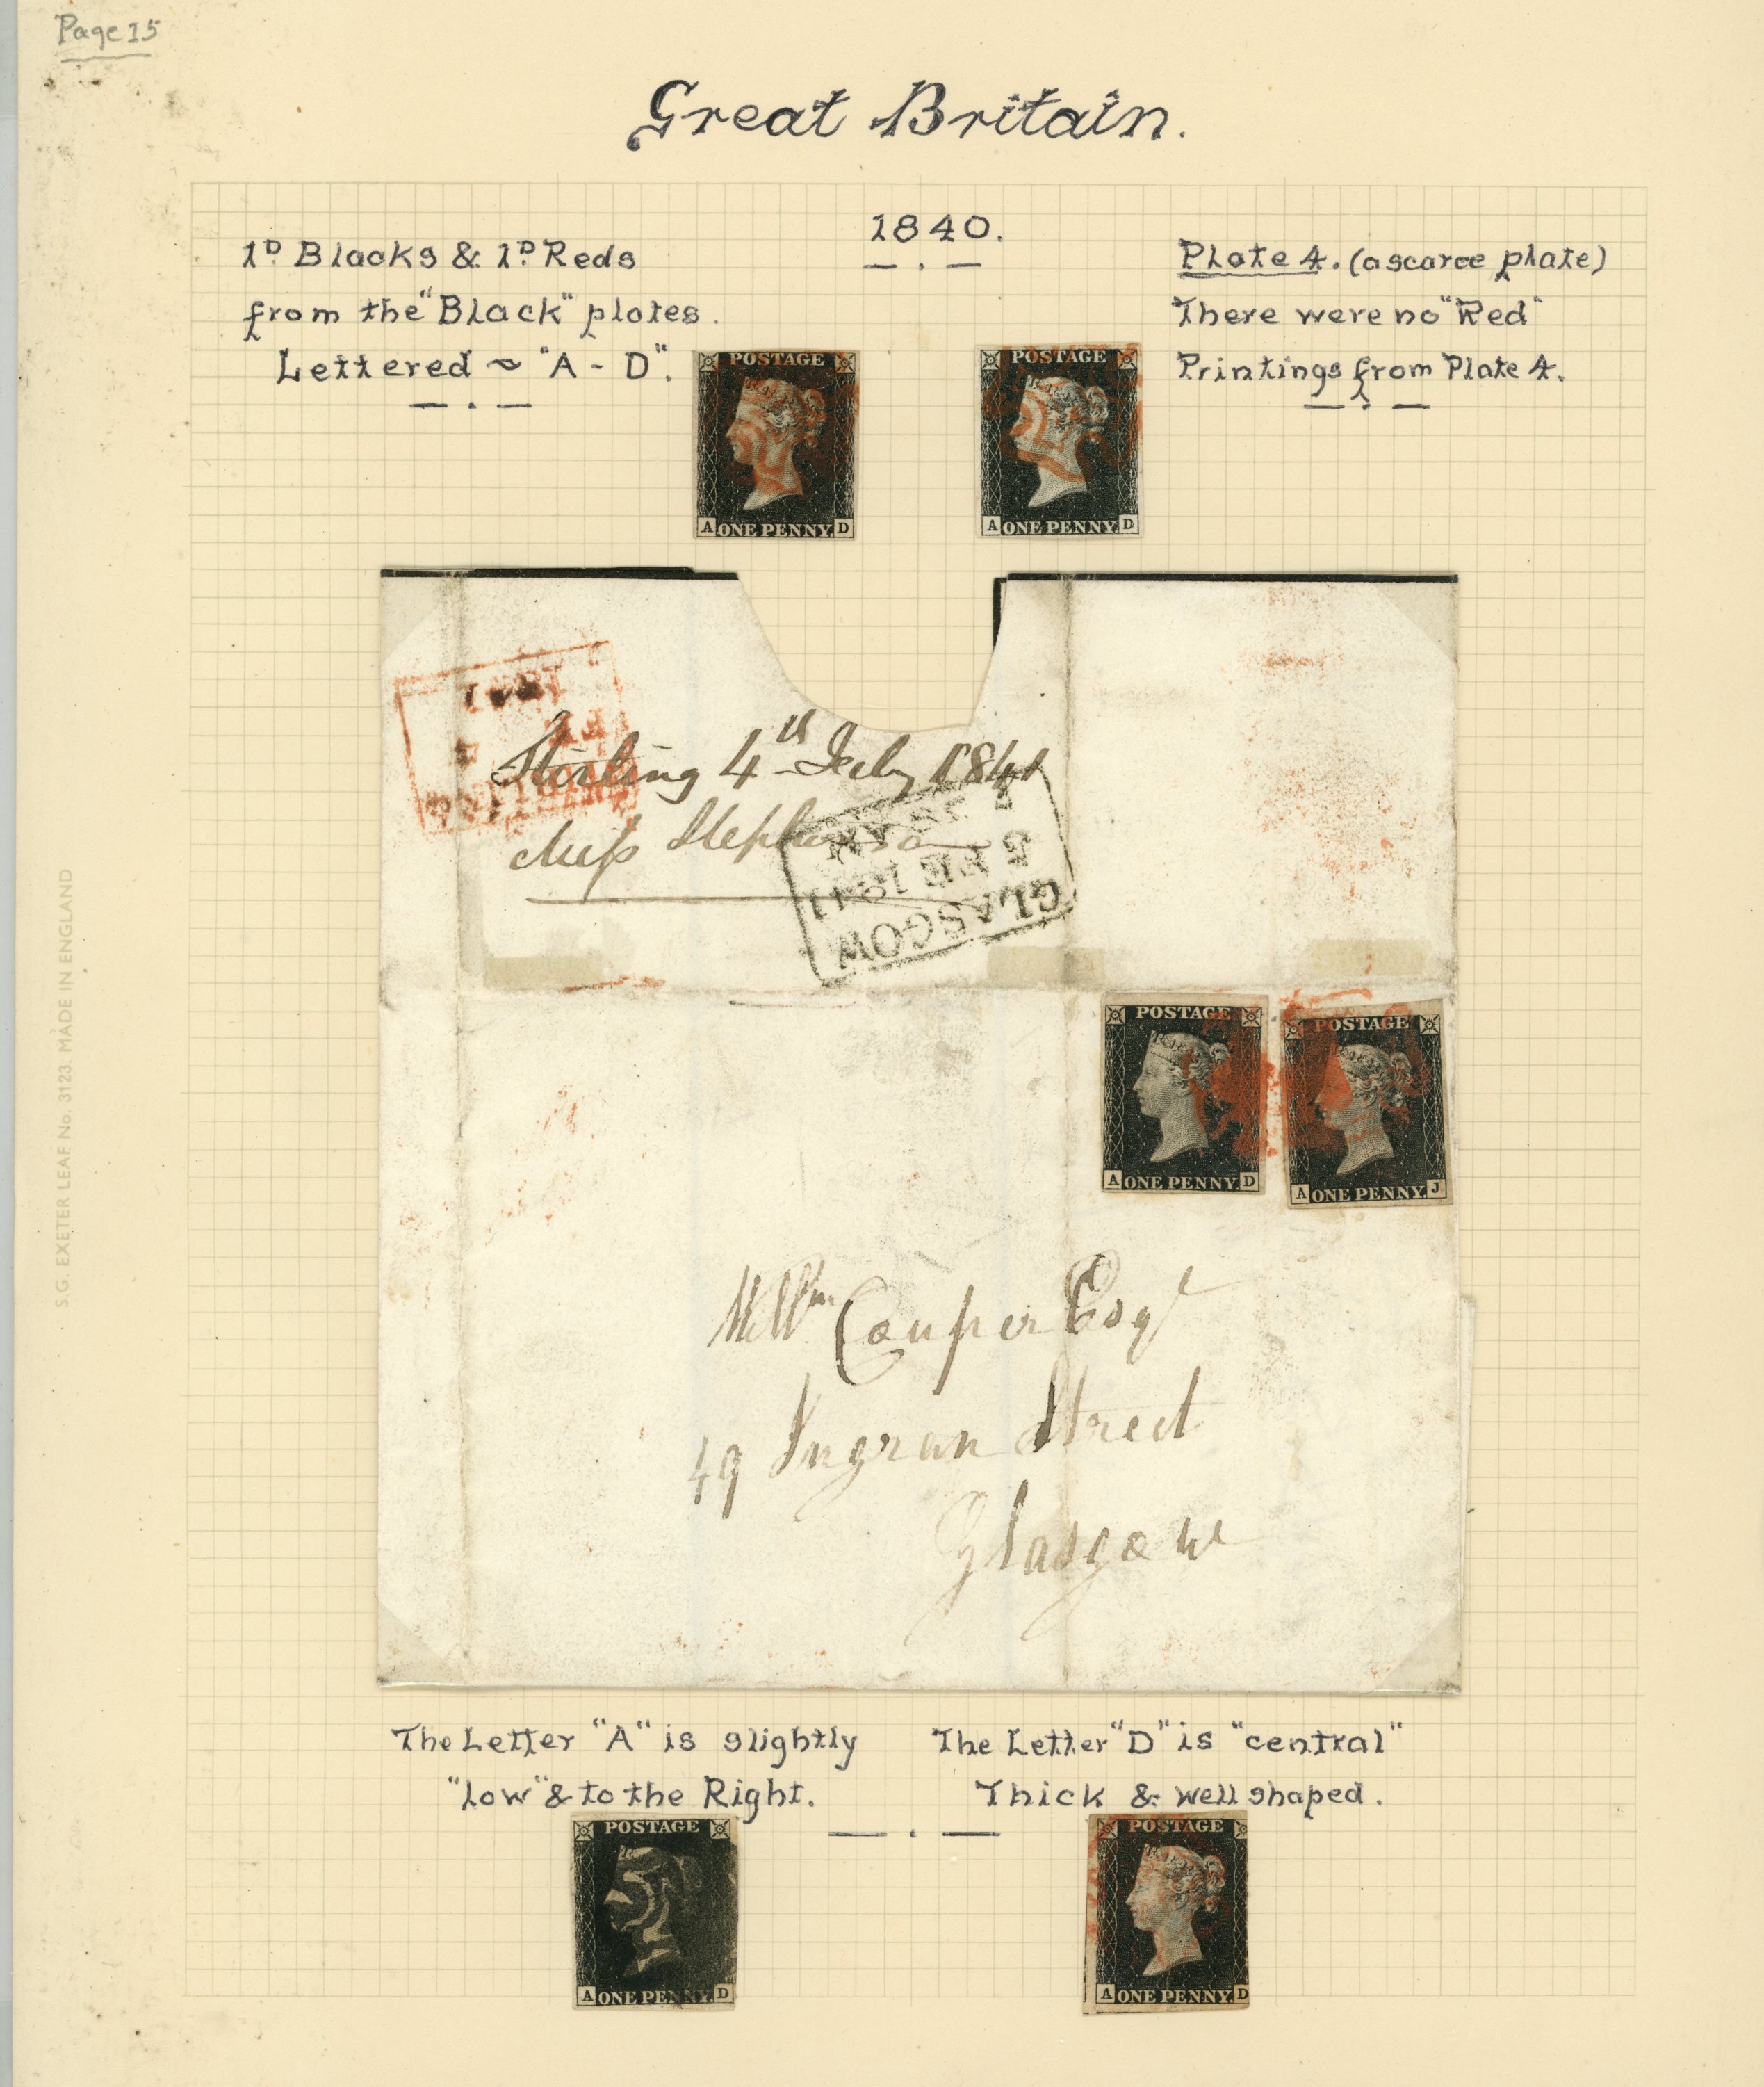 Page 15
Great Britain.
1840.
1D Blacks & 1D Reds
from the "Black" plates.
Lettered ~ "A - D".
Plate 4. (a scarce plate)
There were no "Red"
Printings from Plate 4.
POSTAGE
A ONE PENNY. D
POSTAGE
A ONE PENNY. D
1841
Stirling 4th July 1841
Miss
GLASGOW
5 FE 1841
POSTAGE
A ONE PENNY. D
POSTAGE
A ONE PENNY. J
Wm Couper Esqr
49 Ingram Street
Glasgow
The Letter "A" is slightly
"low" & to the Right.
The Letter "D" is "central"
Thick & well shaped.
POSTAGE
A ONE PENNY. D
POSTAGE
A ONE PENNY. D
S.G. EXETER LEAF. No. 3123. MADE IN ENGLAND